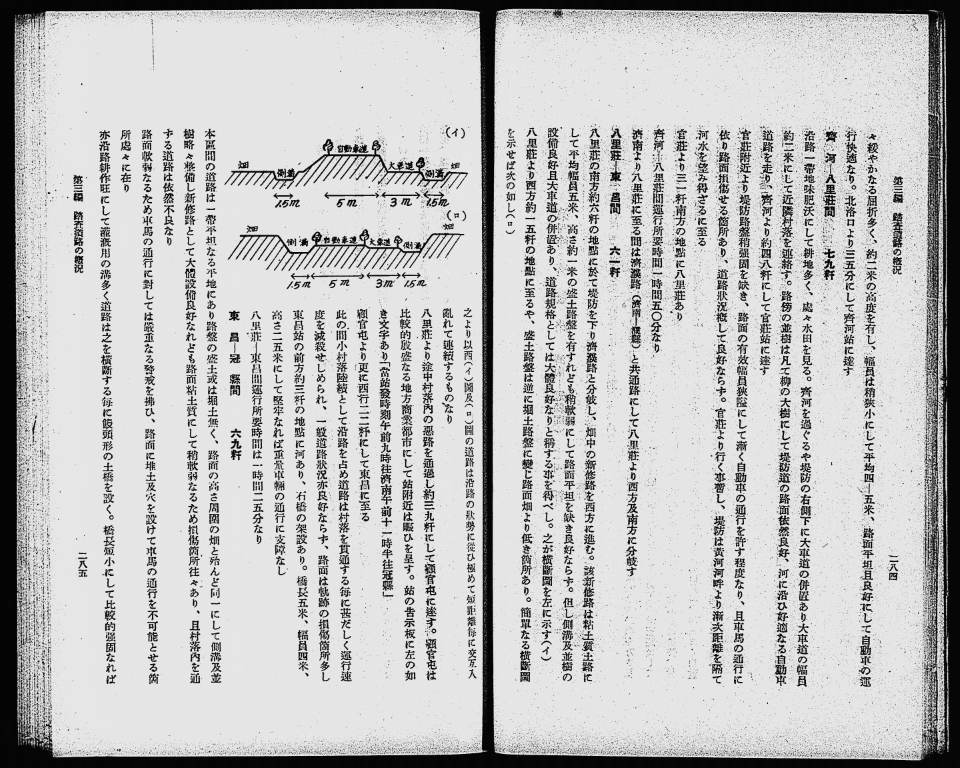 第三編 踏査道路の概況
二八四
々緩やかなる屈折多く、約二米の高度を有し、幅員は稍狹小にして平均四—五米、路面平坦且良好にして自動車の運
行快適なり。北洛方より三五分にして齊河站に達す
齊河—八里莊間 七九粁
沿路一帶地味肥沃にして耕地多く、處々水田を見る。齊河を過ぐるや堤防の右側下に大車道の併置あり大車道の幅員
約二米にして近隣村落を連絡す。路傍の並樹は凡て柳の大樹にして堤防道の路面依然良好、河に沿ひ好適なる自動車
道路を走り、齊河より約四八粁にして官莊站に達す
官莊附近より堤防路盤稍强固を缺き、路面の有效幅員狹隘にして漸く自動車の通行を許す程度なり、且車馬の通行に
依り路面損傷せる箇所あり、道路狀況概して良好ならず。官莊より行く事暫し、堤防は黃河河畔より漸次距離を隔て
河水を望み得ざるに至る
官莊より三一粁南方の地點に八里莊あり
齊河—八里莊間運行所要時間一時間五〇分なり
濟南より八里莊に至る間は濟濮路(濟南—濮縣)と共通路にして八里莊より西方及南方に分岐す
八里莊—東昌間 六一粁
八里莊の南方約六粁の地點に於て堤防を下り濟濮路と分岐し、畑中の新修路を西方に進む。該新修路は粘土質土路に
して平均幅員五米、高さ約一米の盛土路盤を有すれども稍軟弱にして路面平坦を缺き良好ならず。但し側溝及並樹の
設備良好且大車道の併置あり、道路規格としては大體良好なりと稱する事を得べし。之が橫斷圖を左に示す(イ)
八里莊より西方約一五粁の地點に至るや、盛土路盤は逆に掘土路盤に變じ路面畑より低き箇所あり。簡單なる橫斷圖
を示せば次の如し(ロ)
(イ)
畑 側溝 自動車道 大車道 側溝 畑
1.5m 5m 3m 1.5m
(ロ)
畑 側溝 自動車道 大車道 側溝 畑
1.5m 5m 3m 1.5m
之より以西(イ)圖及(ロ)圖の道路は沿路の狀勢に從ひ極めて短距離每に交互入
亂れて連續するものなり
八里莊より途中村落內の惡路を通過し約三九粁にして顧官屯に達す。顧官屯は
比較的殷盛なる地方商業都市にして站附近は賑ひを呈す。站の吿示板に左の如
き文字あり「當站發時刻午前九時往濟南午前十一時半往冠縣」
顧官屯より更に西行二二粁にして東昌に至る
此の間小村落陸續として沿路を占め道路は村落を貫通する每に甚だしく運行速
度を減殺せしめられ、一般道路狀況亦良好ならず、路面は軌跡の損傷箇所多し
東昌站の前方約三粁の地點に河あり、石橋の架設あり。橋長五米、幅員四米、
高さ二五米にして堅牢なれば重量車輛の通行に支障なし
八里莊—東昌間運行所要時間は一時間二五分なり
東昌—冠縣間 六九粁
本區間の道路は一帶平坦なる平地にあり路盤の盛土或は掘土無く、路面の高さ周圍の畑と殆んど同一にして側溝及並
樹略々整備し新修路として大體設備良好なれども路面粘土質にして稍軟弱なるため損傷箇所往々あり、且村落內を通
ずる道路は依然不良なり
路面軟弱なるため車馬の通行に對しては嚴重なる警戒を拂ひ、路面に堆土及穴を設けて車馬の通行を不可能とせる箇
所處々に在り
亦沿路耕作旺にして灌漑用の溝多く道路は之を橫斷する每に饅頭形の土橋を設く。橋長短小にして比較的强固なれば
第三編 踏査道路の概況
二八五